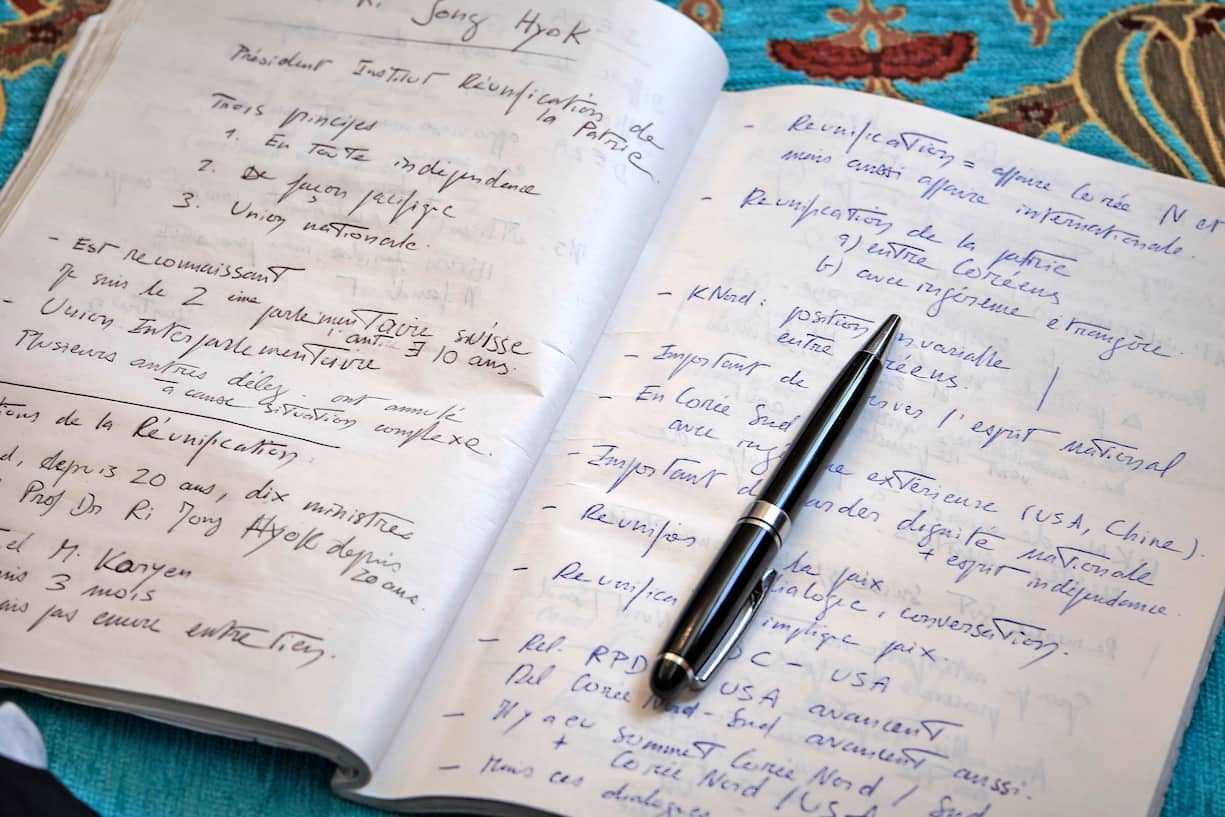 Ri Jong Hyok
Président Institut Réunification de
la Patrie.
Trois principes
1. En toute indépendence
2. De façon pacifique
3. Union nationale.
- Est reconnaissant
Je suis le 2 ième parlementaire suisse
l'autre ∃ 10 ans.
- Union Interparlementaire
Plusieurs autres délég. ont annulé
à cause situation complexe.
tions de la Réunification.
d, depuis 20 ans, dix ministres
Prof Dr Ri Jong Hyok depuis
20 ans.
M. Kanyen
3 mois
pas encore entretien.
- Reunification = affaire Corée N et
mais aussi affaire internationale.
- Reunification de la patrie
a) entre Coréens
b) avec ingérence étrangère.
- KNord: position invariable
entre Coréens.
- Important de l'esprit national
- En Corée Sud
avec extérieure (USA, Chine).
- Important de garder dignité nationale
+ esprit indépendance.
- Reunif la paix
dialogue, conversation.
- Reunification implique paix
- Rel. RPDC - USA
USA avancent
Rel Corée Nord-Sud avancent aussi.
- Il y a eu Sommet Corée Nord / Sud
+ Corée Nord / USA
- Mais ces dialogues